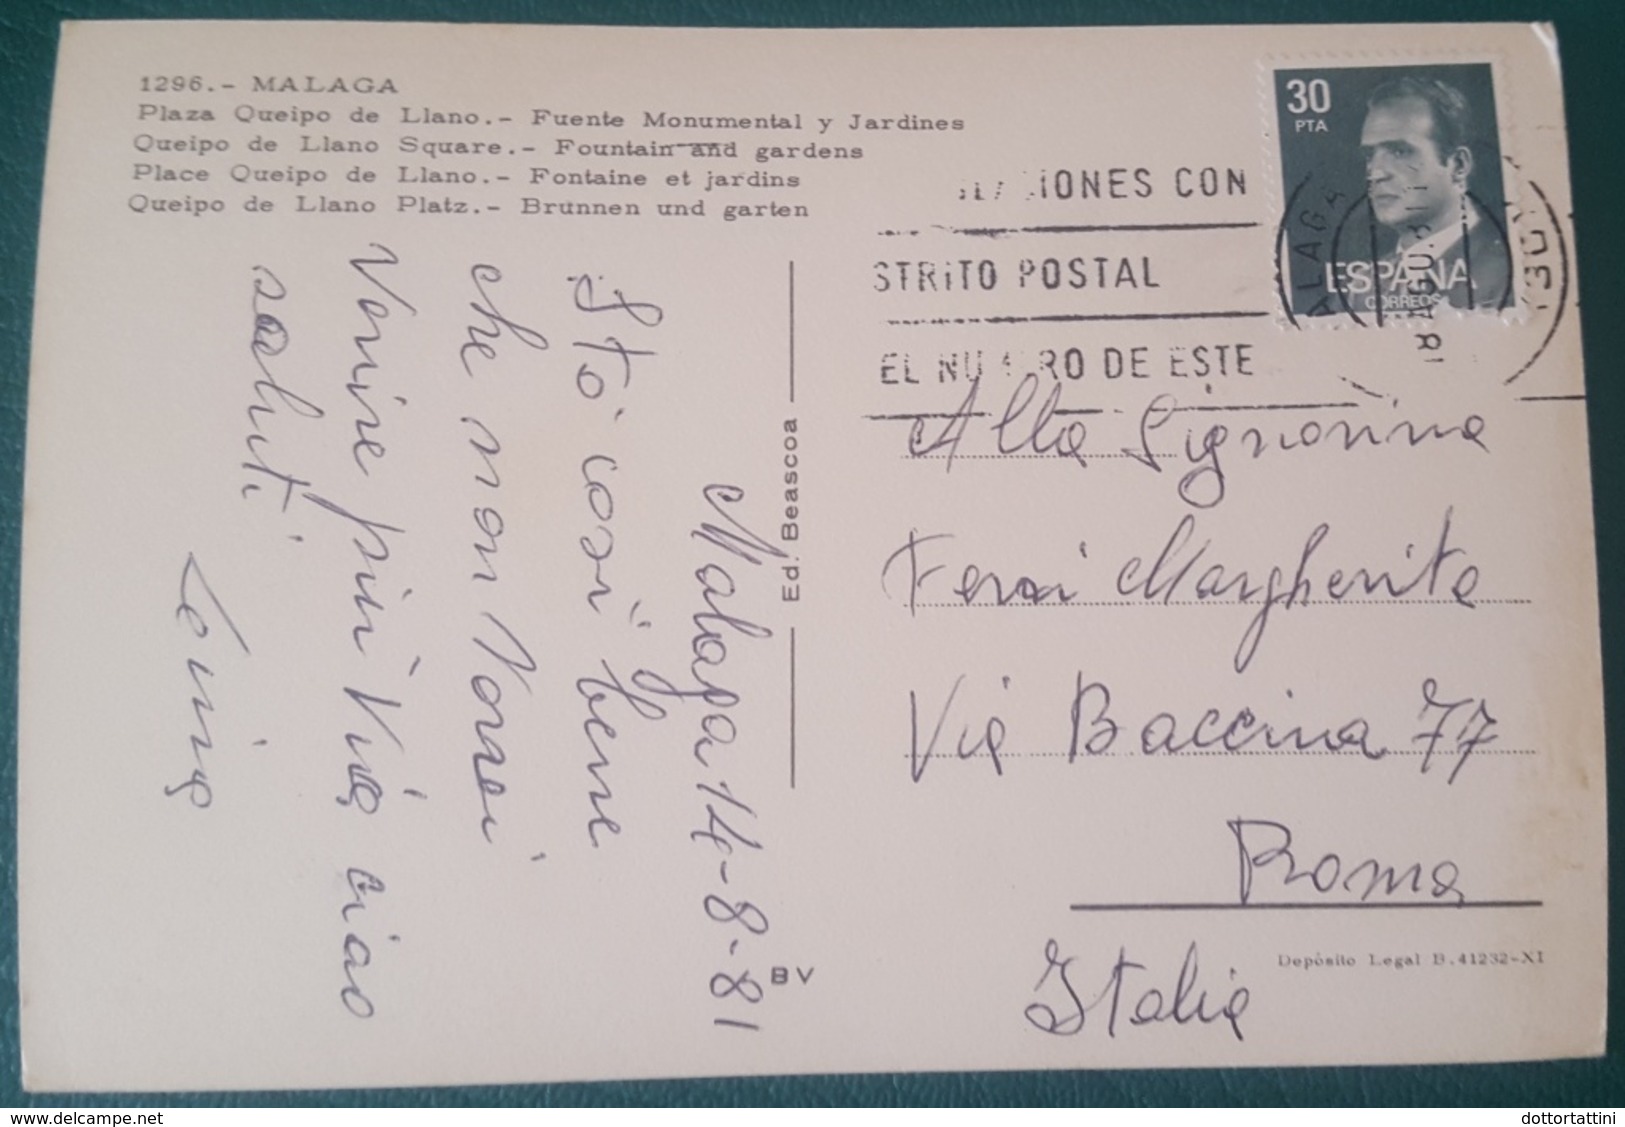 1296.- MALAGA
Plaza Queipo de Llano.- Fuente Monumental y Jardines
Queipo de Llano Square.- Fountain and gardens
Place Queipo de Llano.- Fontaine et jardins
Queipo de Llano Platz.- Brunnen und garten
30
PTA
ESPAÑA
CORREOS
IONES CON
STRITO POSTAL
EL NUMERO DE ESTE
Malaga 14-8-81
Sto così bene
che non vorrei
venire più via ciao
saluti
Ed. Beascoa
B V
Alla Signorina
Margherita
Via Baccina 77
Roma
Italia
Depósito Legal B.41232-XI
dottortattini